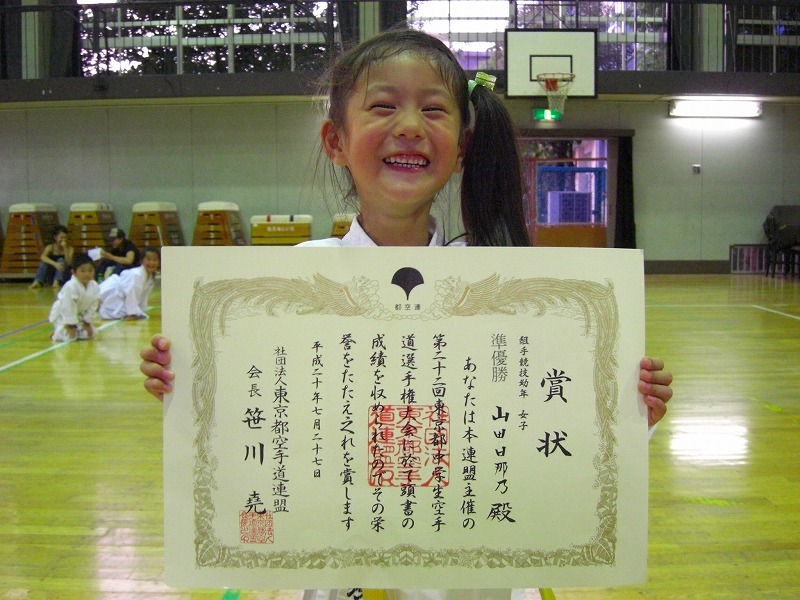 都空連
賞状
組手競技幼年 女子
準優勝 山田日那乃 殿
あなたは本連盟主催の
第二十二回東京都中学生空手
道選手権大会に於て頭書の
成績を収められたのでその栄
誉をたたえ之れを賞します
平成二十年七月二十七日
社団法人東京都空手道連盟
会長 笹川 堯